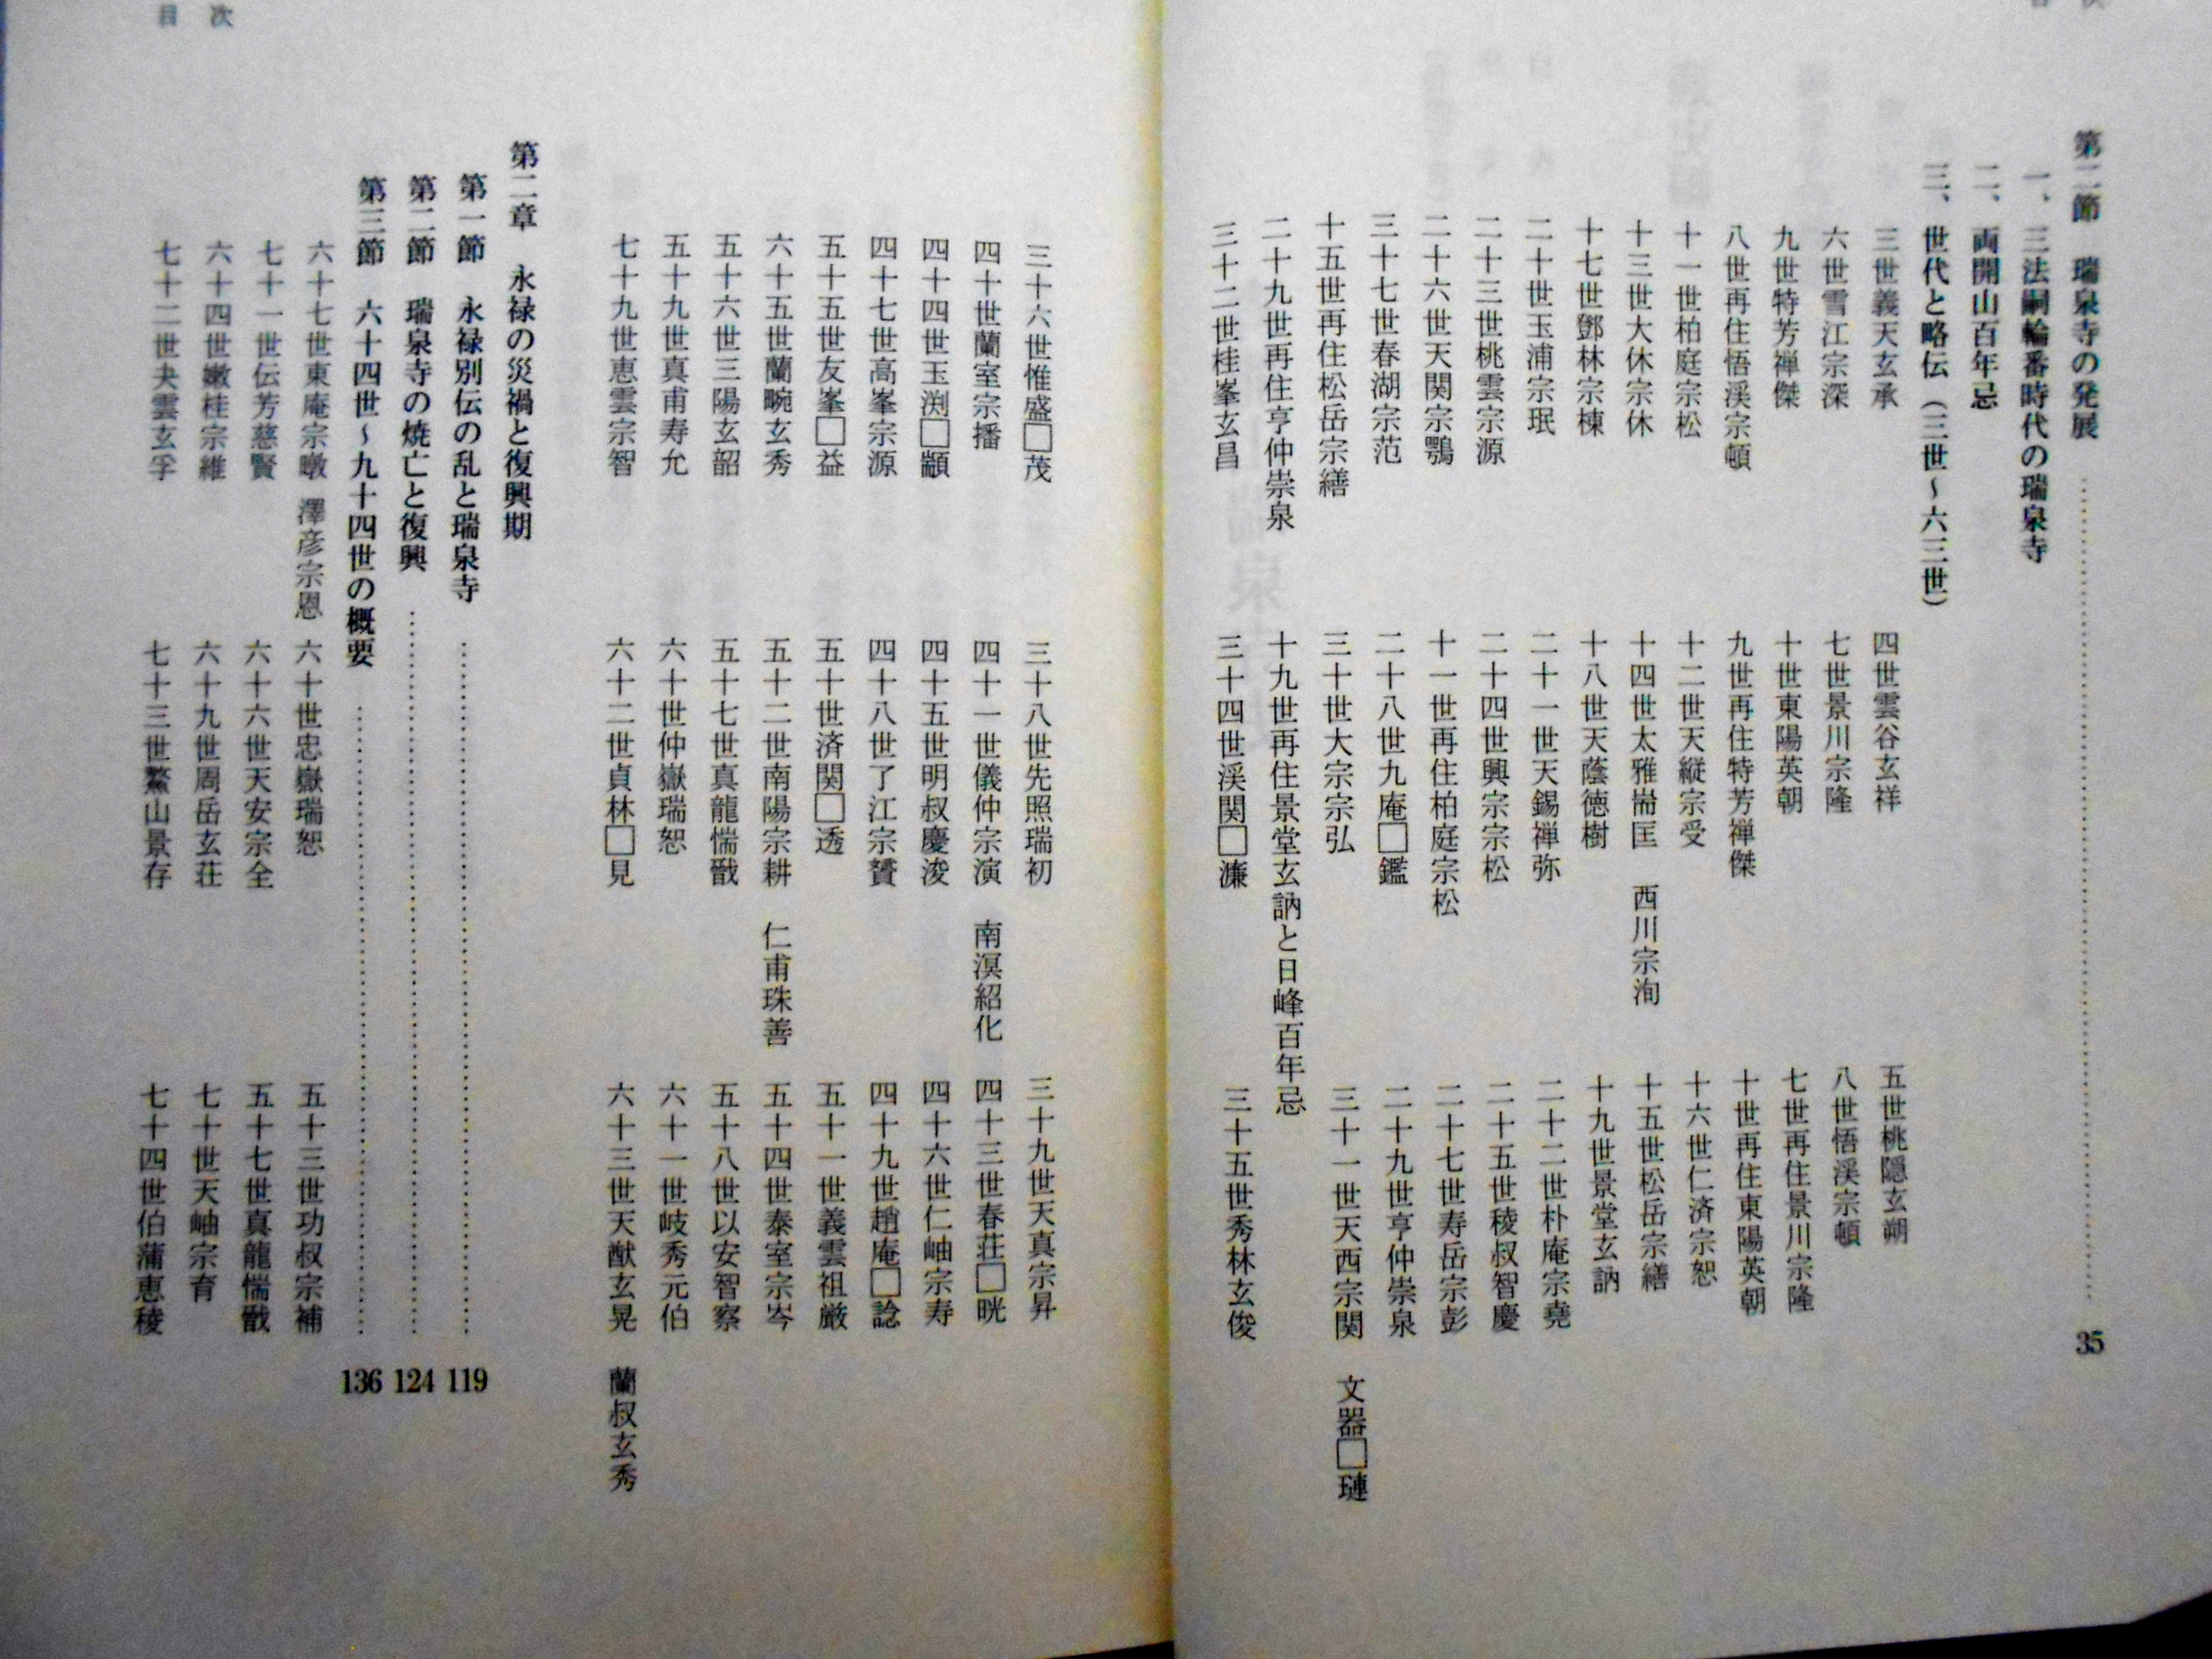 第二節　瑞泉寺の発展 35
一、三法嗣輪番時代の瑞泉寺
二、両開山百年忌
三、世代と略伝（三世～六三世）
三世義天玄承　四世雲谷玄祥　五世桃隠玄朔
六世雪江宗深　七世景川宗隆　八世悟渓宗頓
九世特芳禅傑　十世東陽英朝　七世再住景川宗隆
八世再住悟渓宗頓　九世再住特芳禅傑　十世再住東陽英朝
十一世柏庭宗松　十二世天縦宗受　十六世仁済宗恕
十三世大休宗休　十四世太雅耑匡　西川宗洵　十五世松岳宗繕
十七世鄧林宗棟　十八世天蔭徳樹　十九世景堂玄訥
二十世玉浦宗珉　二十一世天錫禅弥　二十二世朴庵宗堯
二十三世桃雲宗源　二十四世興宗宗松　二十五世稜叔智慶
二十六世天関宗鶚　十一世再住柏庭宗松　二十七世寿岳宗彭
三十七世春湖宗范　二十八世九庵□鑑　二十九世亨仲崇泉
十五世再住松岳宗繕　三十世大宗宗弘　三十一世天西宗関　文器□璉
二十九世再住亨仲崇泉　十九世再住景堂玄訥と日峰百年忌
三十二世桂峯玄昌　三十四世渓関□濂　三十五世秀林玄俊
三十六世惟盛□茂　三十八世先照瑞初　三十九世天真宗昇
四十世蘭室宗播　四十一世儀仲宗演　南溟紹化　四十三世春荘□晄
四十四世玉渕□顓　四十五世明叔慶浚　四十六世仁岫宗寿
四十七世高峯宗源　四十八世了江宗贇　四十九世趙庵□諗
五十五世友峯□益　五十世済関□透　五十一世義雲祖厳
六十五世蘭畹玄秀　五十二世南陽宗耕　仁甫珠善　五十四世泰室宗岑
五十六世三陽玄韶　五十七世真龍惴戩　五十八世以安智察
五十九世真甫寿允　六十世仲嶽瑞恕　六十一世岐秀元伯
七十九世恵雲宗智　六十二世貞林□見　六十三世天猷玄晃　蘭叔玄秀
第二章　永禄の災禍と復興期
第一節　永禄別伝の乱と瑞泉寺 119
第二節　瑞泉寺の焼亡と復興 124
第三節　六十四世～九十四世の概要 136
六十七世東庵宗暾　澤彦宗恩　六十世忠嶽瑞恕　五十三世功叔宗補
七十一世伝芳慈賢　六十六世天安宗全　五十七世真龍惴戩
六十四世嫩桂宗維　六十九世周岳玄荘　七十世天岫宗育
七十二世夬雲玄孚　七十三世鰲山景存　七十四世伯蒲恵稜
目次